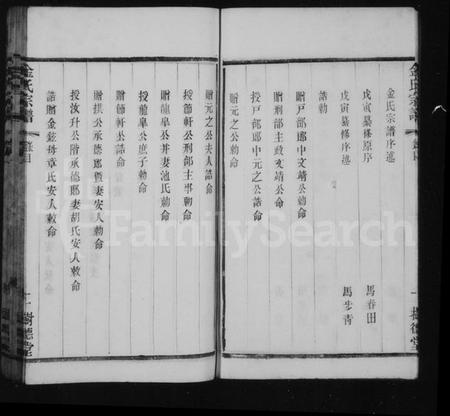 金氏宗譜
樹德堂
金氏宗譜序述
戊寅纂修原序 馬春田
戊寅纂修序述 馬步青
誥勅
贈戶部郎中文靖公勅命
贈刑部主政文靖公命
授戶部郎中元之公誥命
贈元之公勅命
贈元之公夫人誥命
授節軒公刑部主事勅命
贈龍皐公并妻池氏勅命
授龍皐公庶子勅命
贈師軒公勅命
贈拱公承德郎暨妻安人勅命
授汝升公階承德郎妻胡氏安人敕命
誥贈金鉉母章氏安人敕命
金氏宗譜
樹德堂
FamilySearch